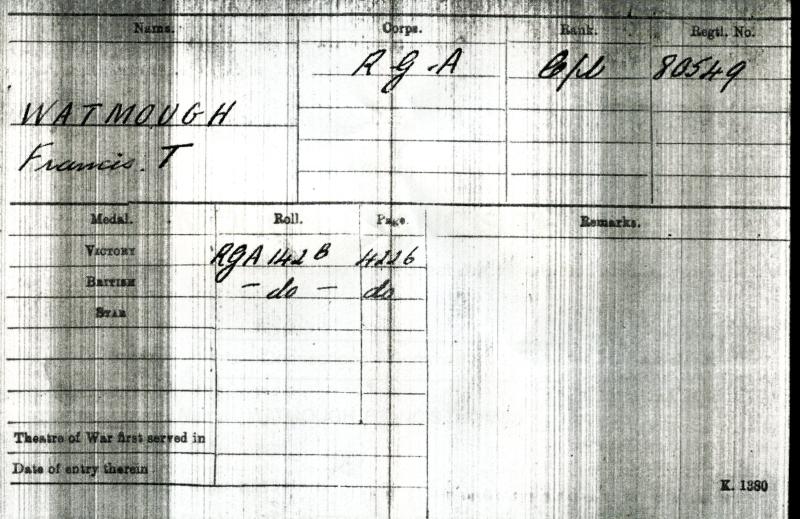 Name. Corps. Rank. Regtl. No.
R G.A Cpl 80549
WATMOUGH
Francis. T
Medal. Roll. Page. Remarks.
VICTORY RGA 142 B 4226
BRITISH - do - do
STAR
Theatre of War first served in
Date of entry therein
K. 1380